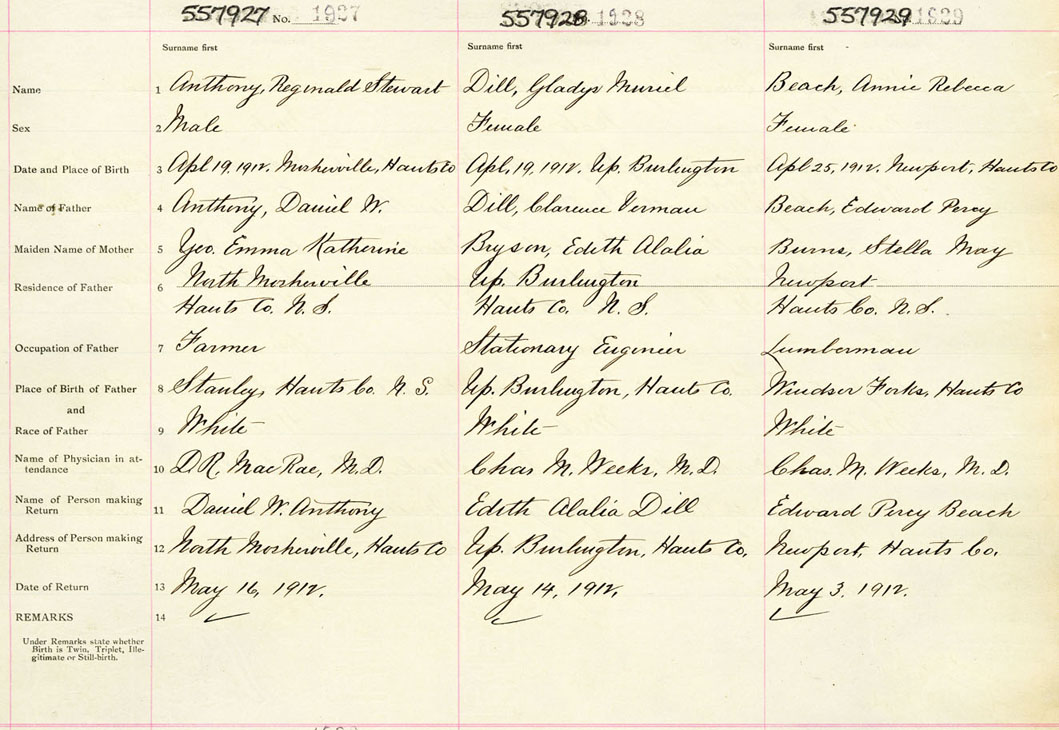 557927 No. 1927 557928 1928 557929 1929
Surname first Surname first Surname first
Name 1 Anthony, Reginald Stewart Dill, Gladys Muriel Beach, Annie Rebecca
Sex 2 Male Female Female
Date and Place of Birth 3 Apl 19, 1912. Mosherville, Hants Co Apl, 19, 1912. Up. Burlington Apl 25, 1912. Newport, Hants Co
Name of Father 4 Anthony, Daniel W. Dill, Clarence Vernan Beach, Edward Percy
Maiden Name of Mother 5 Yeo. Emma Katherine Bryson, Edith Alalia Burns, Stella May
Residence of Father 6 North Mosherville Up. Burlington Newport
Hants Co. N.S. Hants Co. N.S. Hants Co. N.S.
Occupation of Father 7 Farmer Stationary Enginier Lumberman
Place of Birth of Father 8 Stanley, Hants Co. N.S. Up. Burlington, Hants Co. Windsor Forks, Hants Co
and
Race of Father 9 White White White
Name of Physician in at-
tendance 10 D.R. MacRae, M.D. Chas M. Weeks, M.D. Chas. M. Weeks, M.D.
Name of Person making
Return 11 Daniel W. Anthony Edith Alalia Dill Edward Percy Beach
Address of Person making
Return 12 North Mosherville, Hants Co Up. Burlington, Hants Co. Newport, Hants Co.
Date of Return 13 May 16, 1912. May 14, 1912, May 3, 1912.
REMARKS 14
Under Remarks state whether
Birth is Twin, Triplet, Ille-
gitimate or Still-birth.